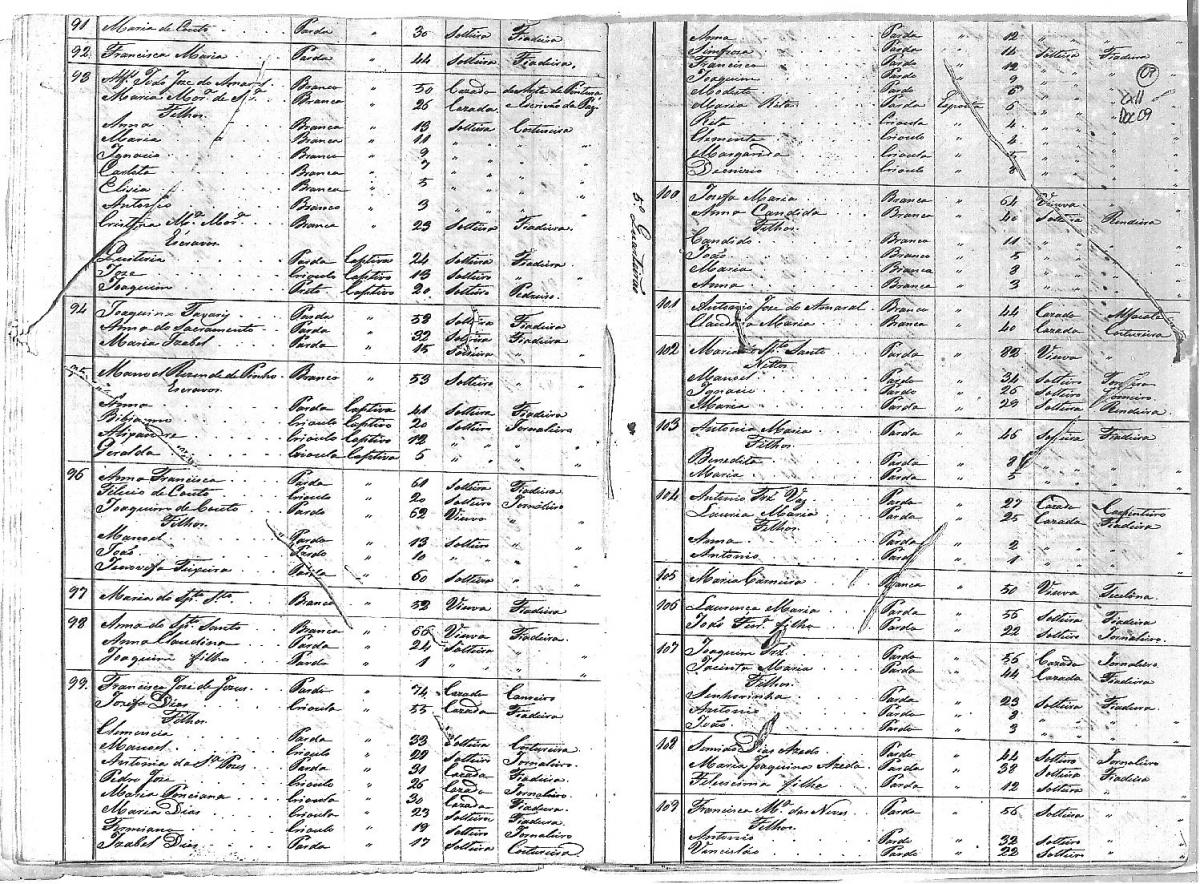 91 Maria do Couto Parda " 30 Solteira Fiadeira
92 Francisca Maria Parda " 44 Solteira Fiadeira
93 João Joze do Amaral Branco " 50 Cazado da Arte de Pintura
Maria Branca " 26 Cazada
Filhos
Anna Branca " 13 Solteira Costureira
Maria Branca " 11 " "
Ignacio Branco " 9 " "
Carlota " 7 " "
Elisia Branca " 5 " "
Antonio Branco " 3 " "
Cristina Mª Branca " 23 Solteira Fiadeira
Escravos
Quiteria Parda Captiva 24 Solteira Fiadeira
Joze Crioulo Captivo 13 Solteiro "
Joaquim Preto Captivo 20 Solteiro Pedreiro
94 Joaquina Parda " 52 Solteira Fiadeira
Anna do Sacramento Parda " 32 Solteira Fiadeira
Maria Izabel Parda " 15 Solteira "
95 Manoel Rezende de Pinho Branco " 53 Solteiro "
Escravos
Anna Parda Captiva 41 Solteira Fiadeira
Bibianno Crioulo Captivo 20 Solteiro Jornaleiro
Crioulo Captivo 12 " "
Geralda Crioula Captiva 5 " "
96 Anna Francisca Parda " 61 Solteira Fiadeira
do Couto Crioulo " 20 Solteiro Jornaleiro
Joaquim do Couto Pardo " 62 Viuvo "
Filhos
Manoel Pardo " 13 Solteiro "
João Pardo " 10 " "
Teixeira Parda " 60 Solteira "
97 Maria do Spto Sto Branca " 52 Viuva Fiadeira
98 Anna do Spto Santo Branca " 66 Viuva Fiadeira
Anna Claudina Parda " 24 Solteira "
Joaquim filho Pardo " 1 " "
99 Francisco Joze de Jezus Pardo " 74 Cazado
Jozefa Dias Crioula " 55 Cazada Fiadeira
Filhos
Clemencia Parda " 33 Solteira Costureira
Manoel Crioulo " 29 Solteiro Jornaleiro
Antonia Parda " 31 Cazada Fiadeira
Pedro Joze Crioulo " 26 Cazado Jornaleiro
Maria Crioula " 30 Cazada Fiadeira
Maria Dias Crioula " 23 Solteira Fiadeira
Firmiano Crioulo " 19 Solteiro Jornaleiro
Izabel Dias " 17 Solteira Costureira
5º Quarteirão
Anna Parda " 12 " "
Simpoza Parda " 14 Solteira Fiadeira
Francisca Parda " 12 " "
Joaquim Pardo " 9 " "
Modesto Pardo " 6 " "
Maria Rita Parda Exposta 5 " "
Rita Crioula " 4 " "
Clemente Crioulo " 4 " "
Margarida Crioula " "
Dionizio Crioulo " "
CXII
Doc 09
100 Jozefa Maria Branca " 64 Viuva "
Anna Candida Branca " 40 Solteira Rendeira
Filhos
Candido Branco " 11 " "
João Branco " 5 " "
Maria Branca " 8 " "
Anna Branca " 3 " "
101 Antonio Joze do Amaral Branco " 44 Cazado Alfaiate
Maria Branca " 40 Cazada Costureira
102 Maria Spto Santo Parda " 82 Viuva "
Netos
Manoel Pardo " 34 Solteiro
Ignacio Pardo " 26 Solteiro
Maria Parda " 29 Solteira Rendeira
103 Antonia Maria Parda " 46 Solteira Fiadeira
Filhos
Benedita Parda " 8 " "
Maria Parda " 5 " "
104 Antonio Frz Vaz Pardo " 27 Cazado Carpinteiro
Maria Parda " 25 Cazada Fiadeira
Filhos
Anna Parda " 2 " "
Antonio Pardo " 1 " "
105 Maria Carneira Branca " 50 Viuva
106 Laurença Maria Parda " 56 Solteira Fiadeira
João filho Pardo " 22 Solteiro Jornaleiro
107 Joaquim Frz Pardo " 56 Cazado Jornaleiro
Jacinta Maria Parda " 44 Cazada Fiadeira
Filhos
Senhorinha Parda " 23 Solteira Fiadeira
Antonio Pardo " 8 " "
João Pardo " 3 " "
108 Dias Azedo Pardo " 44 Solteiro Jornaleiro
Maria Joaquina Azeda Parda " 38 Solteira Fiadeira
filha Parda " 12 Solteira "
109 Francisca Mª das Neves Parda " 56 Solteira "
Filhos
Antonio Pardo " 32 Solteiro
Vencislão Pardo " 22 Solteiro